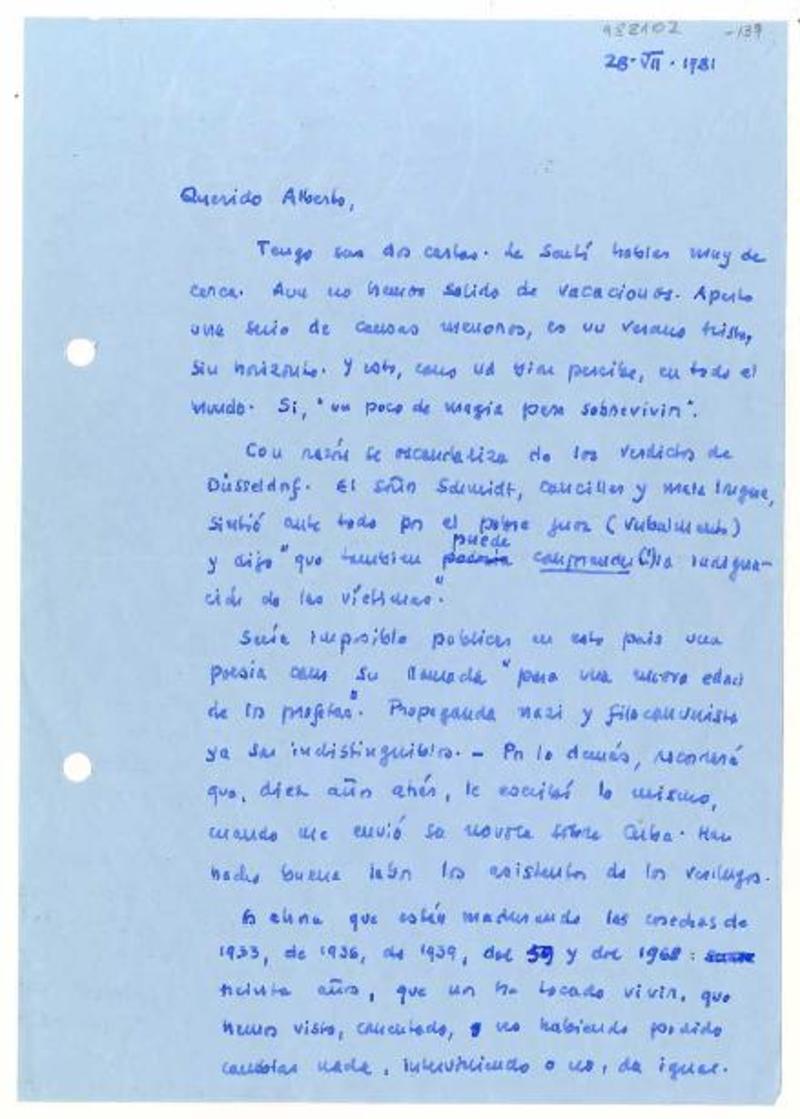 988102 -139
28-VII-1981
Querido Alberto,
Tengo sus dos cartas. Le sentí hablar muy de
cerca. Aun no hemos salido de vacaciones. Aparte
una serie de causas menores, es un verano triste,
sin horizonte. Y esto, como Ud bien percibe, en todo el
mundo. Si, "un poco de magia para sobrevivir".
Con razón se escandaliza de los verdictos de
Düsseldorf. El señor Schmidt, canciller y mala lengua,
sintió ante todo por el pobre juez (verbalmente)
puede
y dijo "que tambien podria comprender (!) la indigna-
ción de las víctimas."
Sería imposible publicar en este pais una
poesía como su llamada "para una nueva edad
de los profetas". Propaganda nazi y filocomunista
ya son indistinguibles. - Por lo demás, recordará
que, diez años atrás, le escribí lo mismo,
cuando me envió su novela sobre Cuba. Han
hecho buena labor los asistentes de los verdugos.
Es ahora que están madurando las cosechas de
1933, de 1936, de 1939, del 59 y del 1968:
treinta años, que nos ha tocado vivir, que
hemos visto, comentado, y no habiendo podido
cambiar nada, interviniendo o no, da igual.